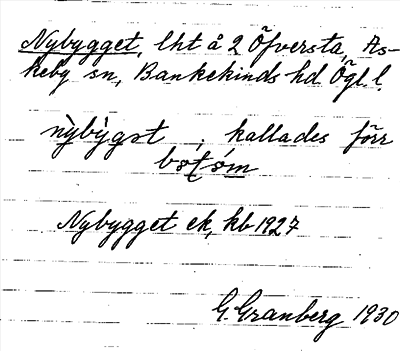 Nybygget, lht å 2 Öfversta, As-
keby sn, Bankekinds hd Ögl.
nỳbỳgət ; kallades förr
Nybygget ek, kb 1927
G Granberg 1930